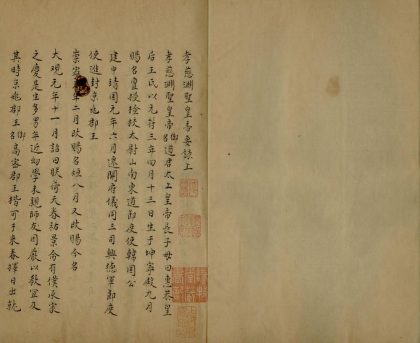 孝慈淵聖皇帝要錄上
孝慈淵聖皇帝御名道君太上皇帝長子母曰惠恭皇
后王氏以元符三年四月十三日生于坤寧殿九月
賜名亶授檢校太尉山南東道節度使韓國公
建中靖國元年六月遷開府儀同三司興德軍節度
使進封京兆郡王
崇寧元年二月改賜名烜八月又改賜今名
大觀元年十一月詔曰朕荷天眷祐景命有僕承家
之慶是生多男年近幼學未親師友用嚴以教宜及
其時京兆郡王御名高密郡王楷可于來春擇日出就